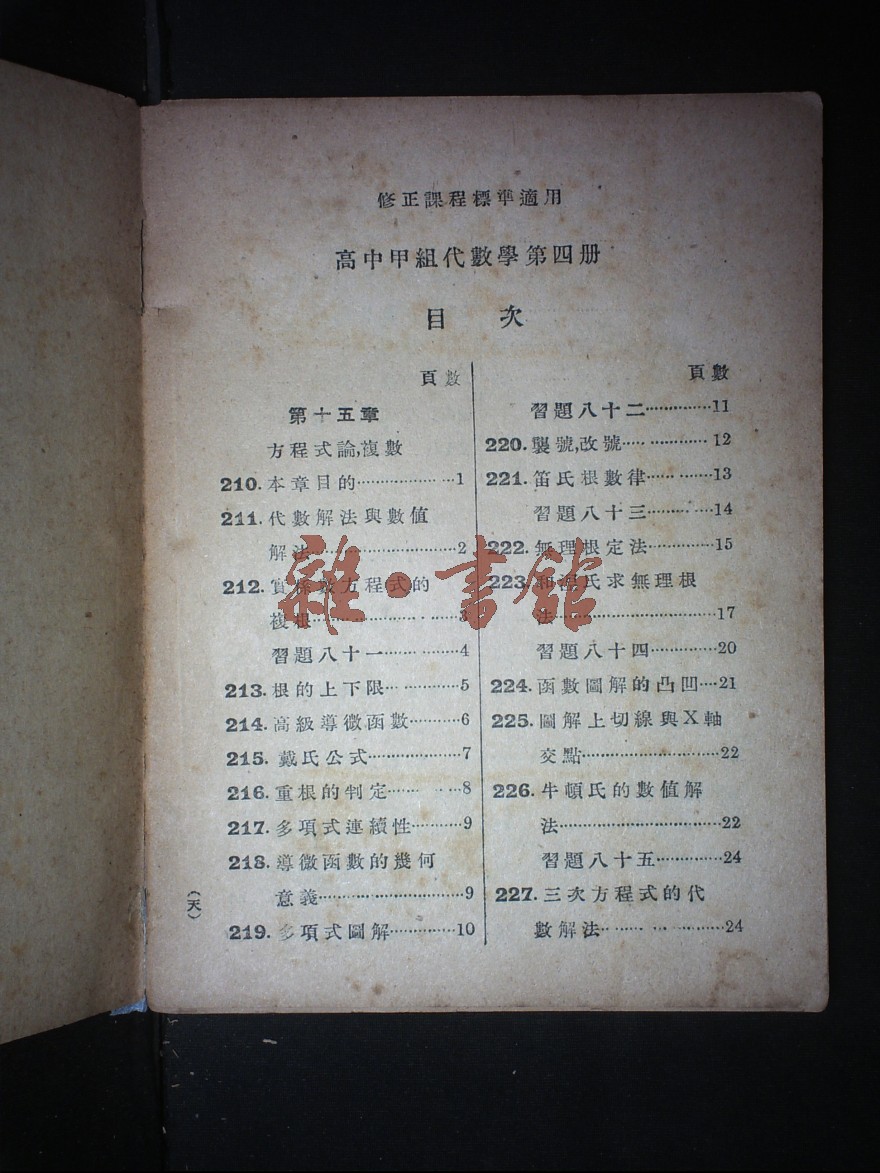 修正課程標準適用
高中甲組代數學第四册
目 次
頁數
第十五章
方程式論,複數
210. 本章目的……………1
211. 代數解法與數值
解法……………2
212. 實係數方程式的
複根……………3
習題八十一……………4
213. 根的上下限……………5
214. 高級導微函數……………6
215. 戴氏公式……………7
216. 重根的判定……………8
217. 多項式連續性……………9
218. 導微函數的幾何
意義……………9
219. 多項式圖解……………10
(天)
頁數
習題八十二……………11
220. 襲號,改號……………12
221. 笛氏根數律……………13
習題八十三……………14
222. 無理根定法……………15
223. 和涅氏求無理根
法……………17
習題八十四……………20
224. 函數圖解的凸凹…21
225. 圖解上切線與X軸
交點……………22
226. 牛頓氏的數值解
法……………22
習題八十五……………24
227. 三次方程式的代
數解法……………24
雜·書館